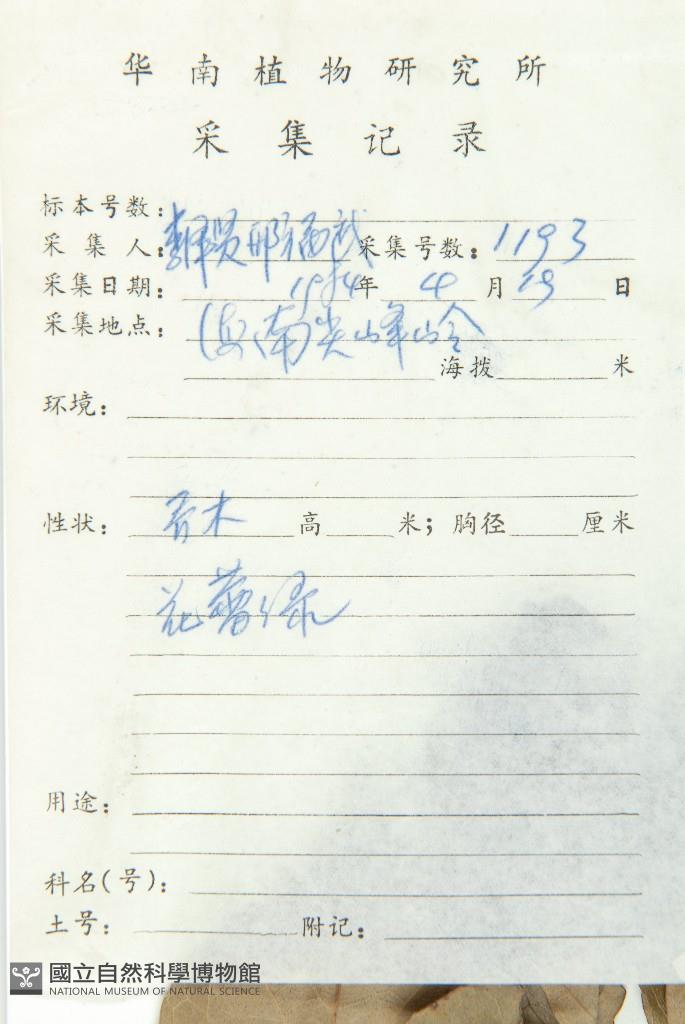 华南植物研究所
采集记录
标本号数：
采集人： 邢福武 采集号数：1193
采集日期： 1984年 4月19日
采集地点： 海南尖峰岭
海拨 米
环境：
性状： 乔木 高 米；胸径 厘米
花蕾绿
用途：
科名(号)：
土号： 附记：
國立自然科學博物館
NATIONAL MUSEUM OF NATURAL SCIENCE